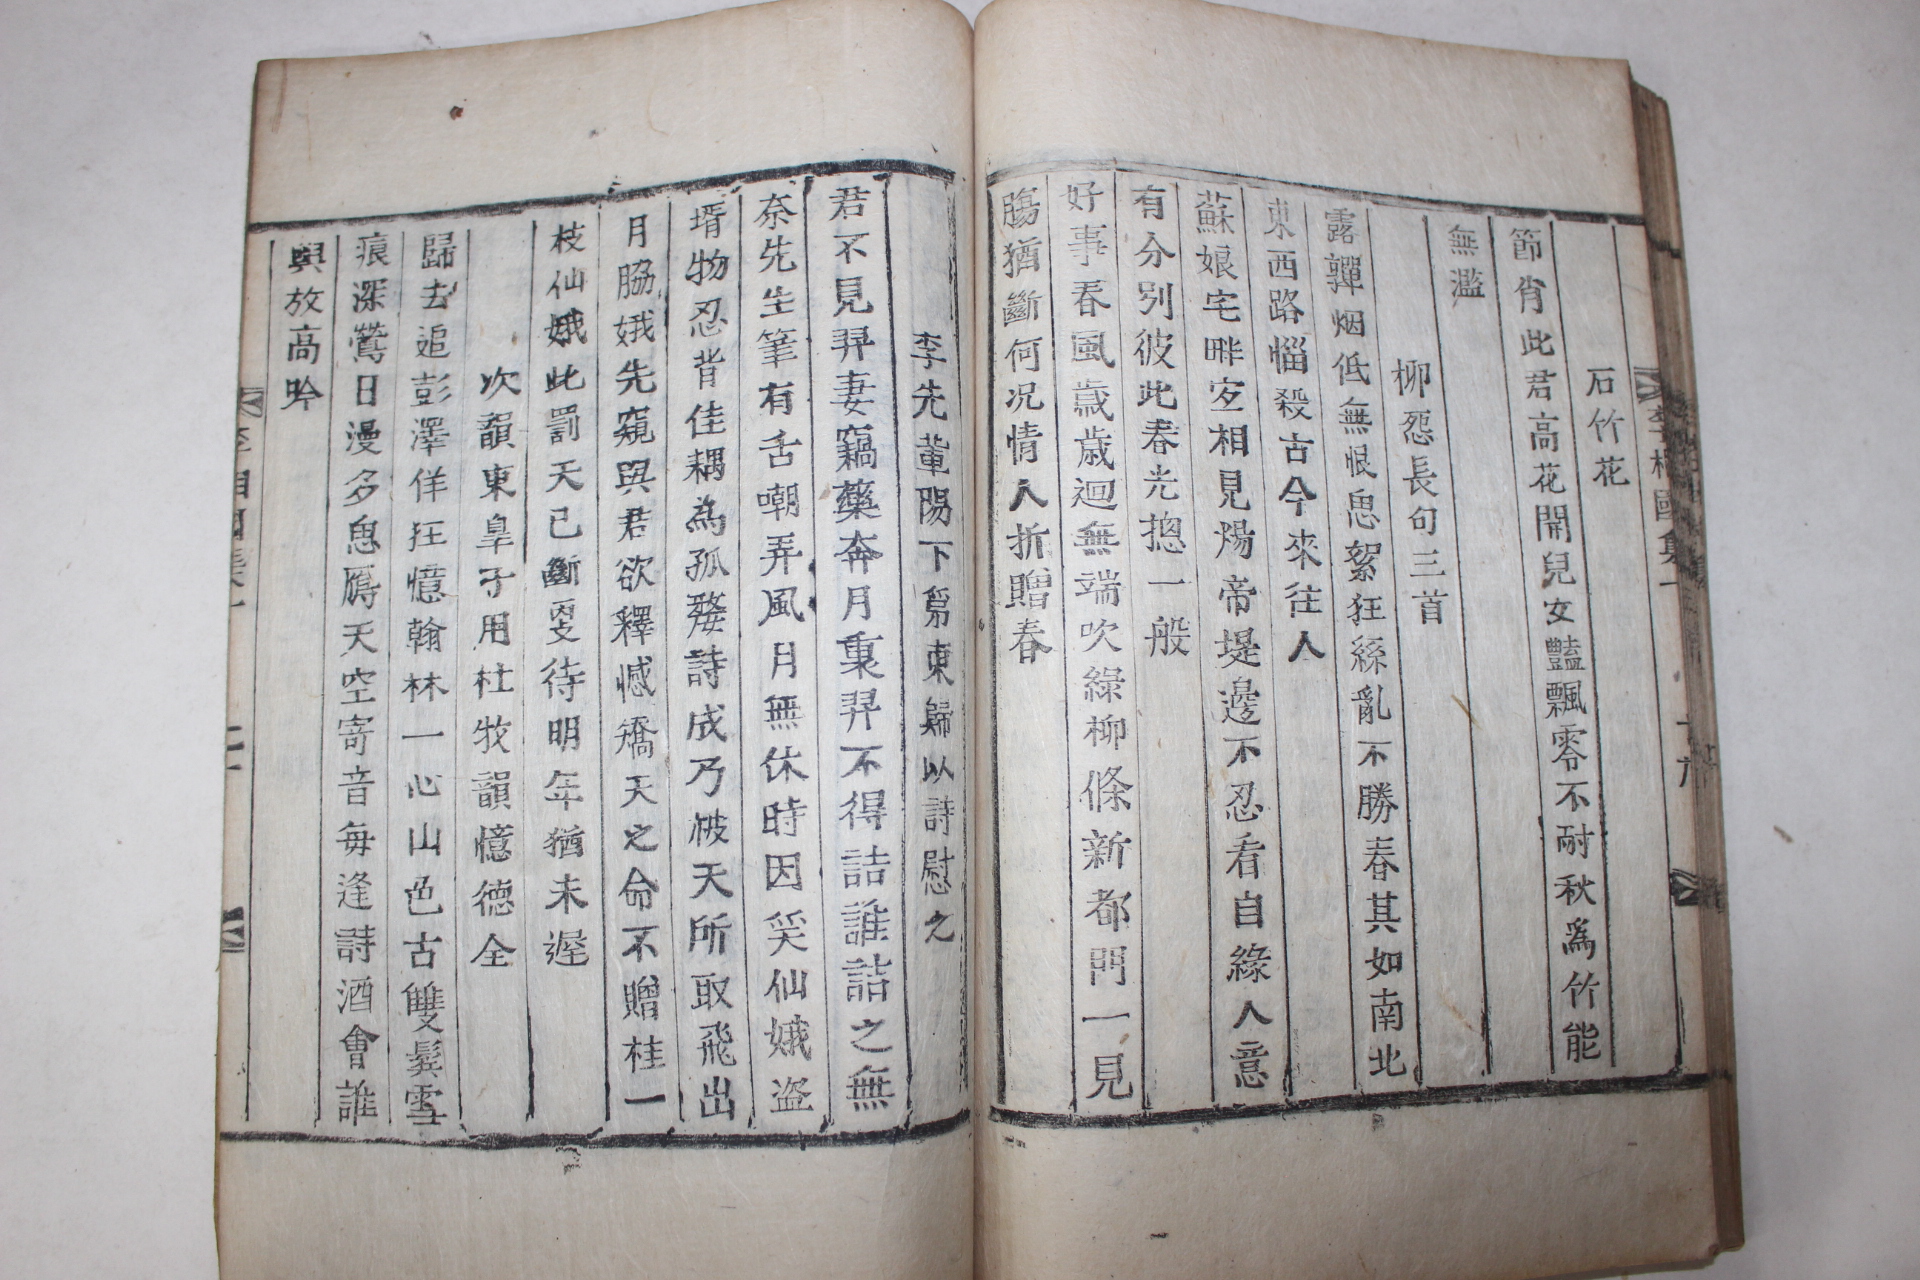 石竹花
節肖此君高花開兒女豔飄零不耐秋爲竹能
無濫
柳怨長句三首
露嚲烟低無恨思絮狂絲亂不勝春其如南北
東西路惱殺古今來往人
蘇娘宅畔乍相見煬帝堤邊不忍看自緣人意
有分別彼此春光摠一般
好事春風歲歲迴無端吹綠柳條新都門一見
膓猶斷何况情人折贈春
李先輩陽下第東歸以詩慰之
君不見羿妻竊藥奔月裏羿不得詰誰詰之無
奈先生筆有舌嘲弄風月無休時因笑仙娥盗
壻物忍背佳耦為孤嫠詩成乃被天所取飛出
月脇娥先窺與君欲釋憾矯天之命不贈桂一
枝仙娥此罰天已斷更待明年猶未遲
次韻東皐子用杜牧韻憶德全
歸去追彭澤佯狂憶翰林一心山色古雙鬂雪
痕深鶯日漫多思鴈天空寄音每逢詩酒會誰
與放高吟
李相國集